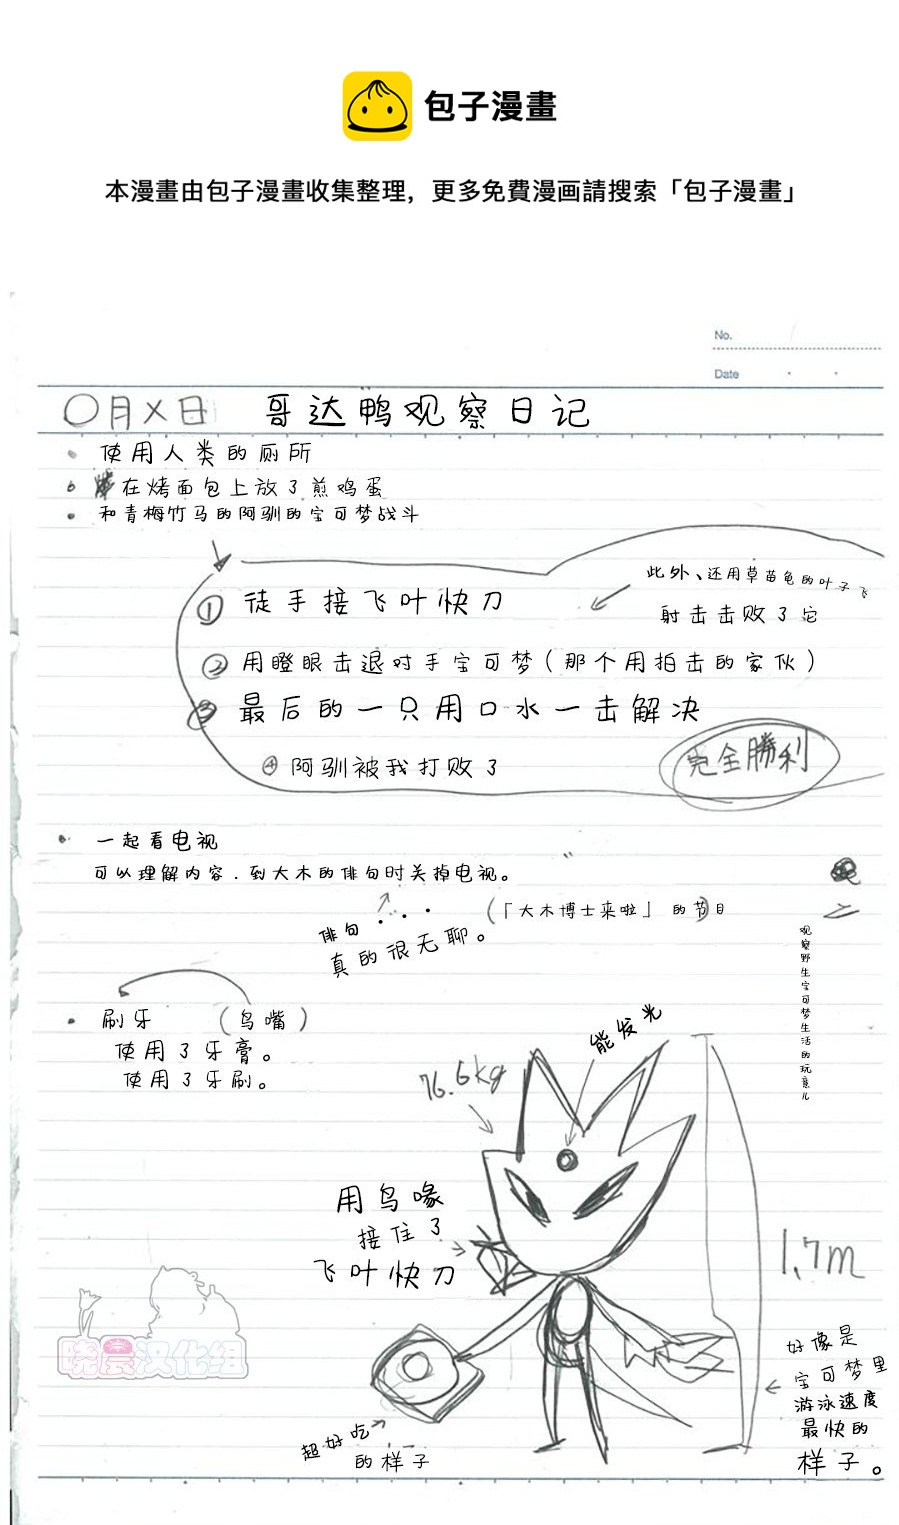 包子漫畫
本漫畫由包子漫畫收集整理，更多免費漫画請搜索「包子漫畫」
No.
Date
〇月X日 哥达鸭观察日记
使用人类的厕所
在烤面包上放了煎鸡蛋
和青梅竹马的阿驯的宝可梦战斗
① 徒手接飞叶快刀
此外、还用草苗龟的叶子飞
射击击败了它
② 用瞪眼击退对手宝可梦(那个用拍击的家伙)
③ 最后的一只用口水一击解决
④ 阿驯被我打败了
完全勝利
一起看电视
可以理解内容.到大木的俳句时关掉电视。
(「大木博士来啦」的节目
俳句・・・
真的很无聊。
观察野生宝可梦生活的玩意儿
刷牙 (鸟嘴)
使用了牙膏。
使用了牙刷。
能发光
76.6kg
用鸟喙
接住了
飞叶快刀
1.7m
晓层汉化组
好像是
宝可梦里
游泳速度
最快的
样子。
超好吃
的样子